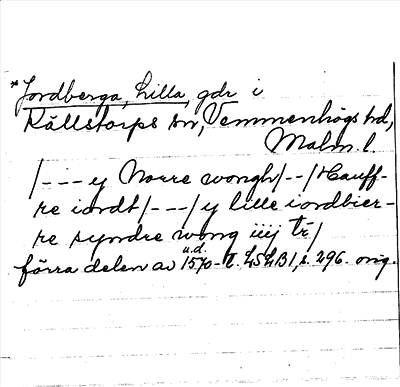 *Jordberga, Lilla, gdr i
Källstorps sn, Vemmenhögs hd,
Malm. l.
/---y Norre wongh/--/Hauff-
re iordt/---/y lille iordbier-
re syndre wong iiij tr/
förra delen av 1570-t. LSLB1, s. 296. orig.
u.d.